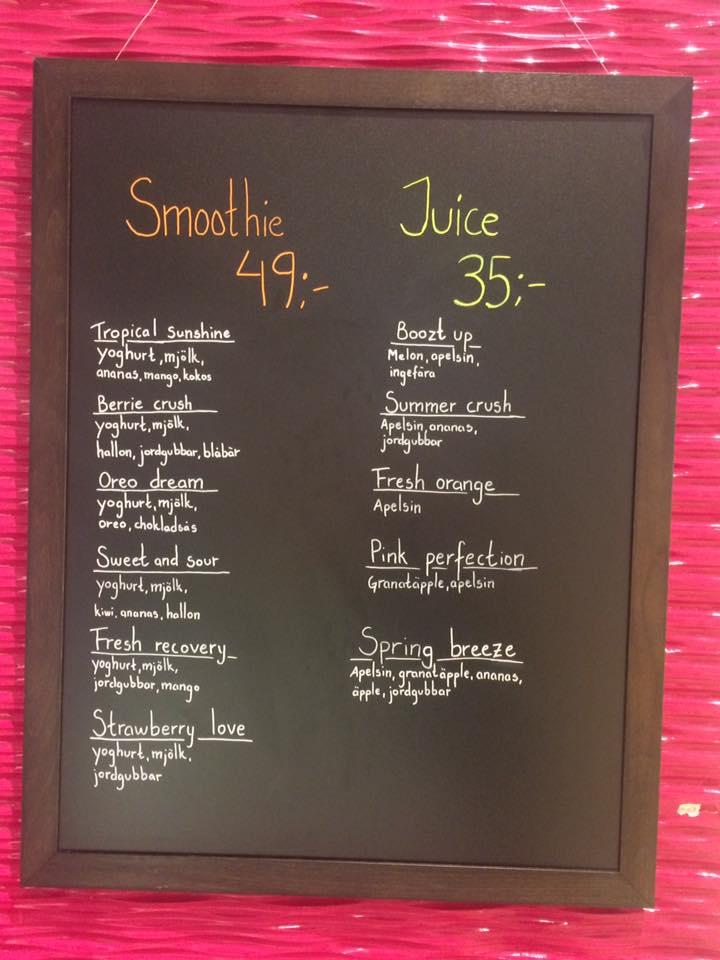 Smoothie
49;-
Tropical sunshine
yoghurt, mjölk,
ananas, mango, kokos
Berrie crush
yoghurt, mjölk,
hallon, jordgubbar, blåbär
Oreo dream
yoghurt, mjölk,
oreo, chokladsås
Sweet and sour
yoghurt, mjölk,
kiwi, ananas, hallon
Fresh recovery
yoghurt, mjölk,
jordgubbar, mango
Strawberry love
yoghurt, mjölk,
jordgubbar
Juice
35;-
Boozt up
Melon, apelsin,
ingefära
Summer crush
Apelsin, ananas,
jordgubbar
Fresh orange
Apelsin
Pink perfection
Granatäpple, apelsin
Spring breeze
Apelsin, granatäpple, ananas,
äpple, jordgubbar